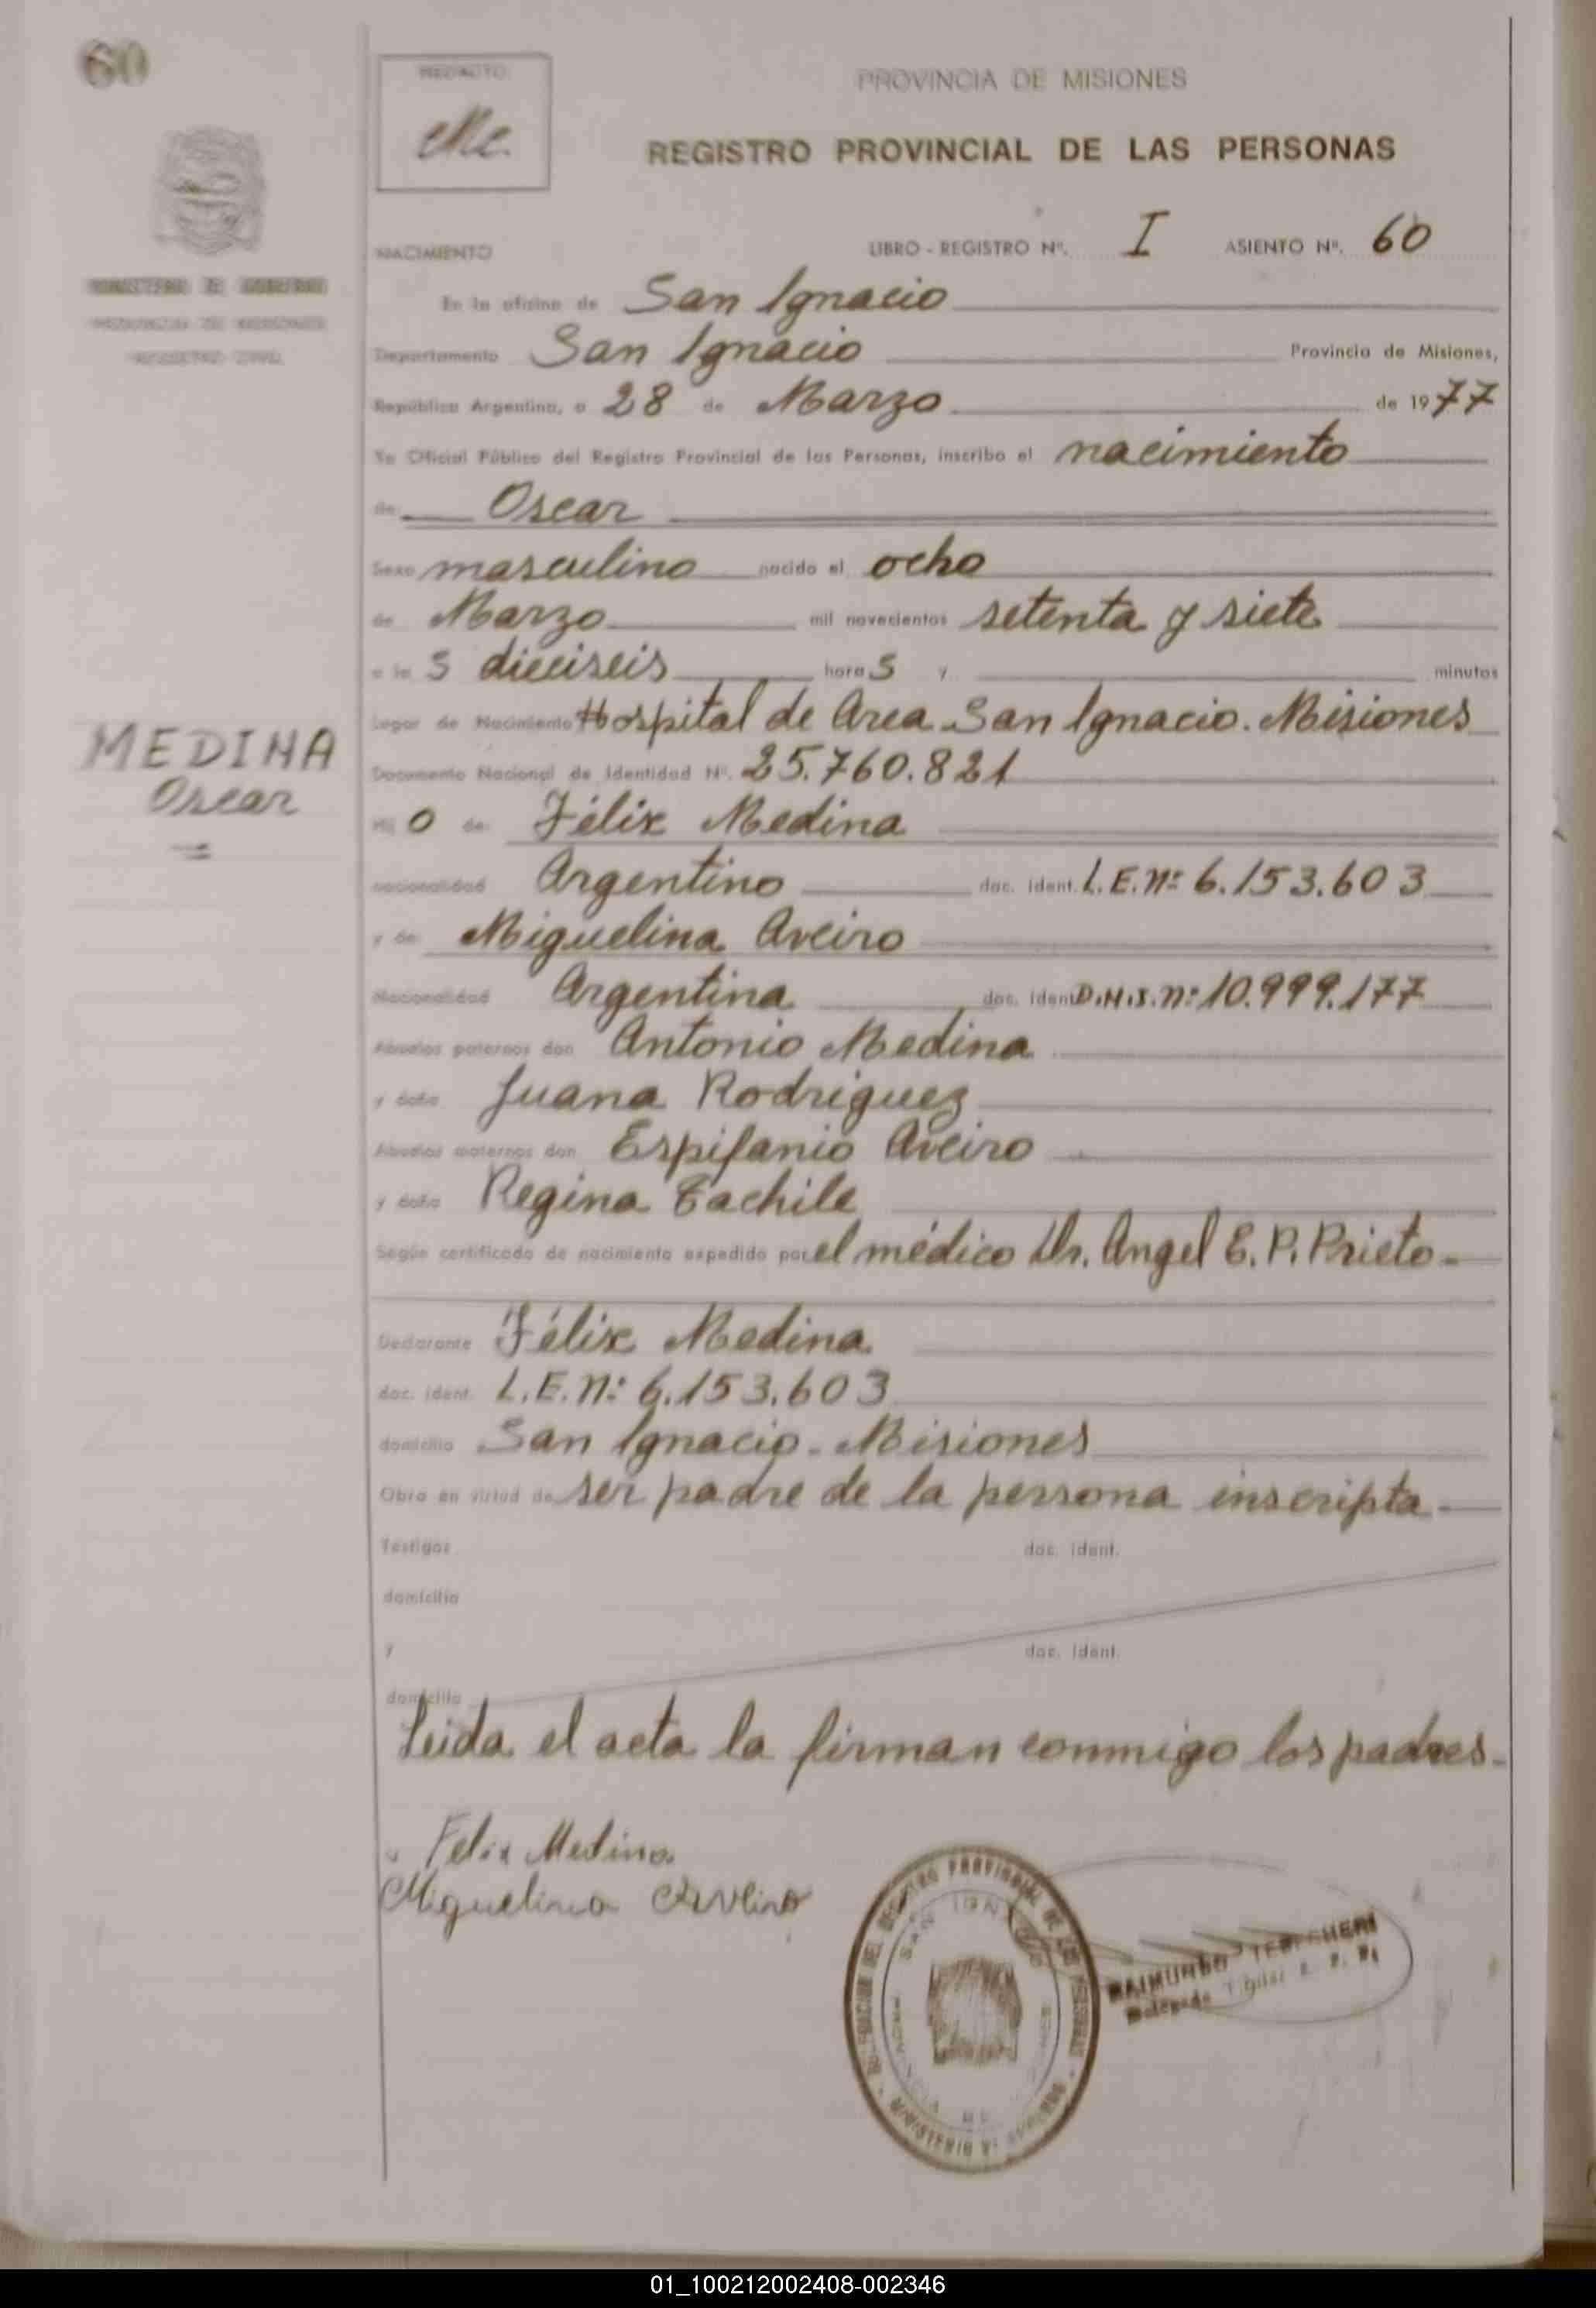 60
MINISTERIO DE GOBIERNO
PROVINCIA DE MISIONES
REGISTRO CIVIL
PROVINCIA DE MISIONES
REGISTRO PROVINCIAL DE LAS PERSONAS
NACIMIENTO LIBRO - REGISTRO Nº. I ASIENTO Nº. 60
En la oficina de San Ignacio
Departamento San Ignacio Provincia de Misiones,
República Argentina, a 28 de Marzo de 1977
Yo Oficial Público del Registro Provincial de las Personas, inscribo el nacimiento
de Oscar
Sexo masculino nacido el ocho
de Marzo mil novecientos setenta y siete
a las dieciseis horas y minutos
Lugar de Nacimiento Hospital de Area San Ignacio. Misiones
Documento Nacional de Identidad Nº. 25.760.821
MEDINA
Oscar
Hijo de Félix Medina
nacionalidad Argentino doc. ident. L.E.Nº 6.153.603
y de Miguelina Aveiro
Nacionalidad Argentina doc. ident. D.N.I. nº 10.999.177
Abuelos paternos don Antonio Medina
y doña Juana Rodriguez
Abuelos maternos don Espifanio Aveiro
y doña Regina Bachile
Según certificado de nacimiento expedido por el médico Dr. Angel E. P. Prieto -
Declarante Félix Medina
doc. ident. L.E. nº 6.153.603
domicilio San Ignacio - Misiones
Obra en virtud de ser padre de la persona inscripta -
Testigos doc. ident.
domicilio
y doc. ident.
domicilio
Leida el acta la firman conmigo los padres -
Felix Medina
Miguelina Aveiro
SAN IGNACIO
RAIMUNDO
01_100212002408-002346